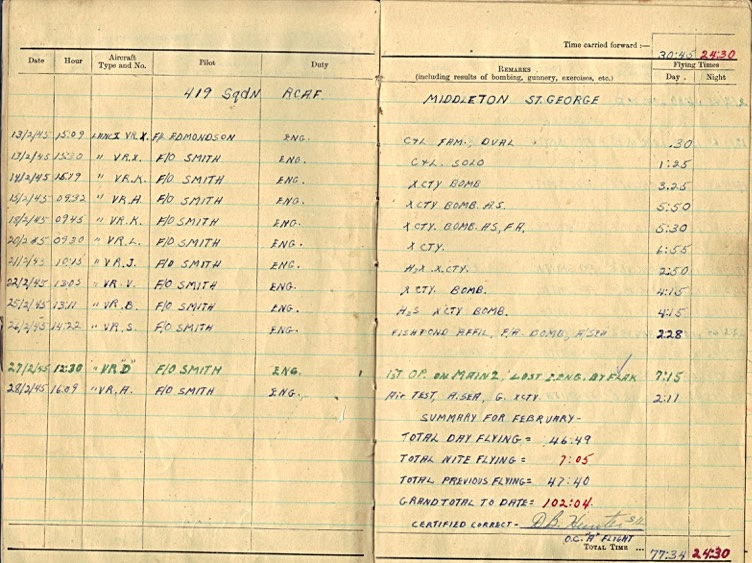 Date Hour Aircraft Type and No. Pilot Duty
419 Sqdn RCAF
13/2/45 15:09 LANCX VR.X. F/L EDMONDSON ENG.
13/2/45 15:30 " VR.X. F/O SMITH ENG.
14/2/45 15:19 " VR.K. F/O SMITH ENG.
15/2/45 09:32 " VR.A. F/O SMITH ENG.
18/2/45 0945 " VR.K. F/O SMITH ENG.
20/2/45 0930 " VR.L. F/O SMITH ENG.
21/2/45 10:15 " VR.J. F/O SMITH ENG.
22/2/45 12:05 " VR.V. F/O SMITH ENG.
25/2/45 13:11 " VR.B. F/O SMITH ENG.
26/2/45 14:22 " VR.S. F/O SMITH ENG.
27/2/45 12:30 " VR"D" F/O SMITH ENG.
28/2/45 16:09 " VR.A. F/O SMITH ENG.
Time carried forward :— 30:45 24:30
Remarks (including results of bombing, gunnery, exercises, etc.) Flying Times Day. Night
MIDDLETON ST. GEORGE
C+L FAM., DUAL .30
C+L. SOLO 1:25
XCTY BOMB 3.25
XCTY BOMB. H.S. 5:50
XCTY. BOMB. HS, F.A. 5:30
X CTY. 6:55
H2X X.CTY. 2:50
XCTY. BOMB. 4:15
H2S XCTY BOMB. 4:15
FISHPOND AFFIL, F.A. BOMB, A/SEA 2.28
1ST OP. ON MAINZ, LOST I. ENG. BY FLAK 7:15
AIR TEST, A.SEA, G. XCTY. 2:11
SUMMARY FOR FEBRUARY-
TOTAL DAY FLYING= 46.49
TOTAL NITE FLYING= 7:05
TOTAL PREVIOUS FLYING= 47:40
GRAND TOTAL TO DATE= 102:04.
CERTIFIED CORRECT- D.B. Hunter S/L
O.C. "A" FLIGHT
Total Time ... 77:34 24:30